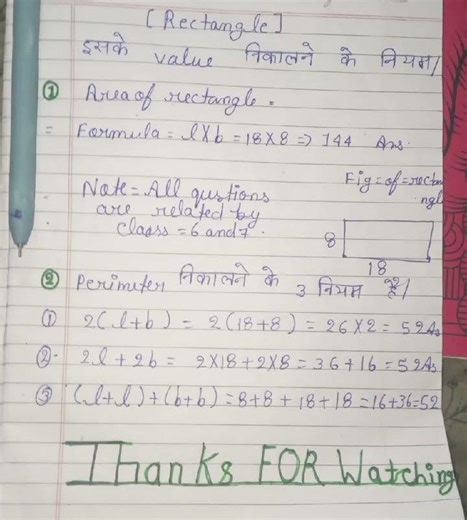 [Rectangle]
इसके value निकालने के नियम/
① Area of rectangle.
= Formula = l×b = 18×8 => 144 Ans.
Note = All qustions
are related by
claass = 6 and 7.
Fig = of = rectan
ngl
8
18
② Perimeter निकालने के 3 नियम है/
① 2(l+b) = 2(18+8) = 26×2 = 52 As
②- 2l+2b = 2×18+2×8 = 36+16 = 52 As
③ (l+l)+(b+b) = 8+8+18+18 = 16+36=52
Thanks FOR Watching